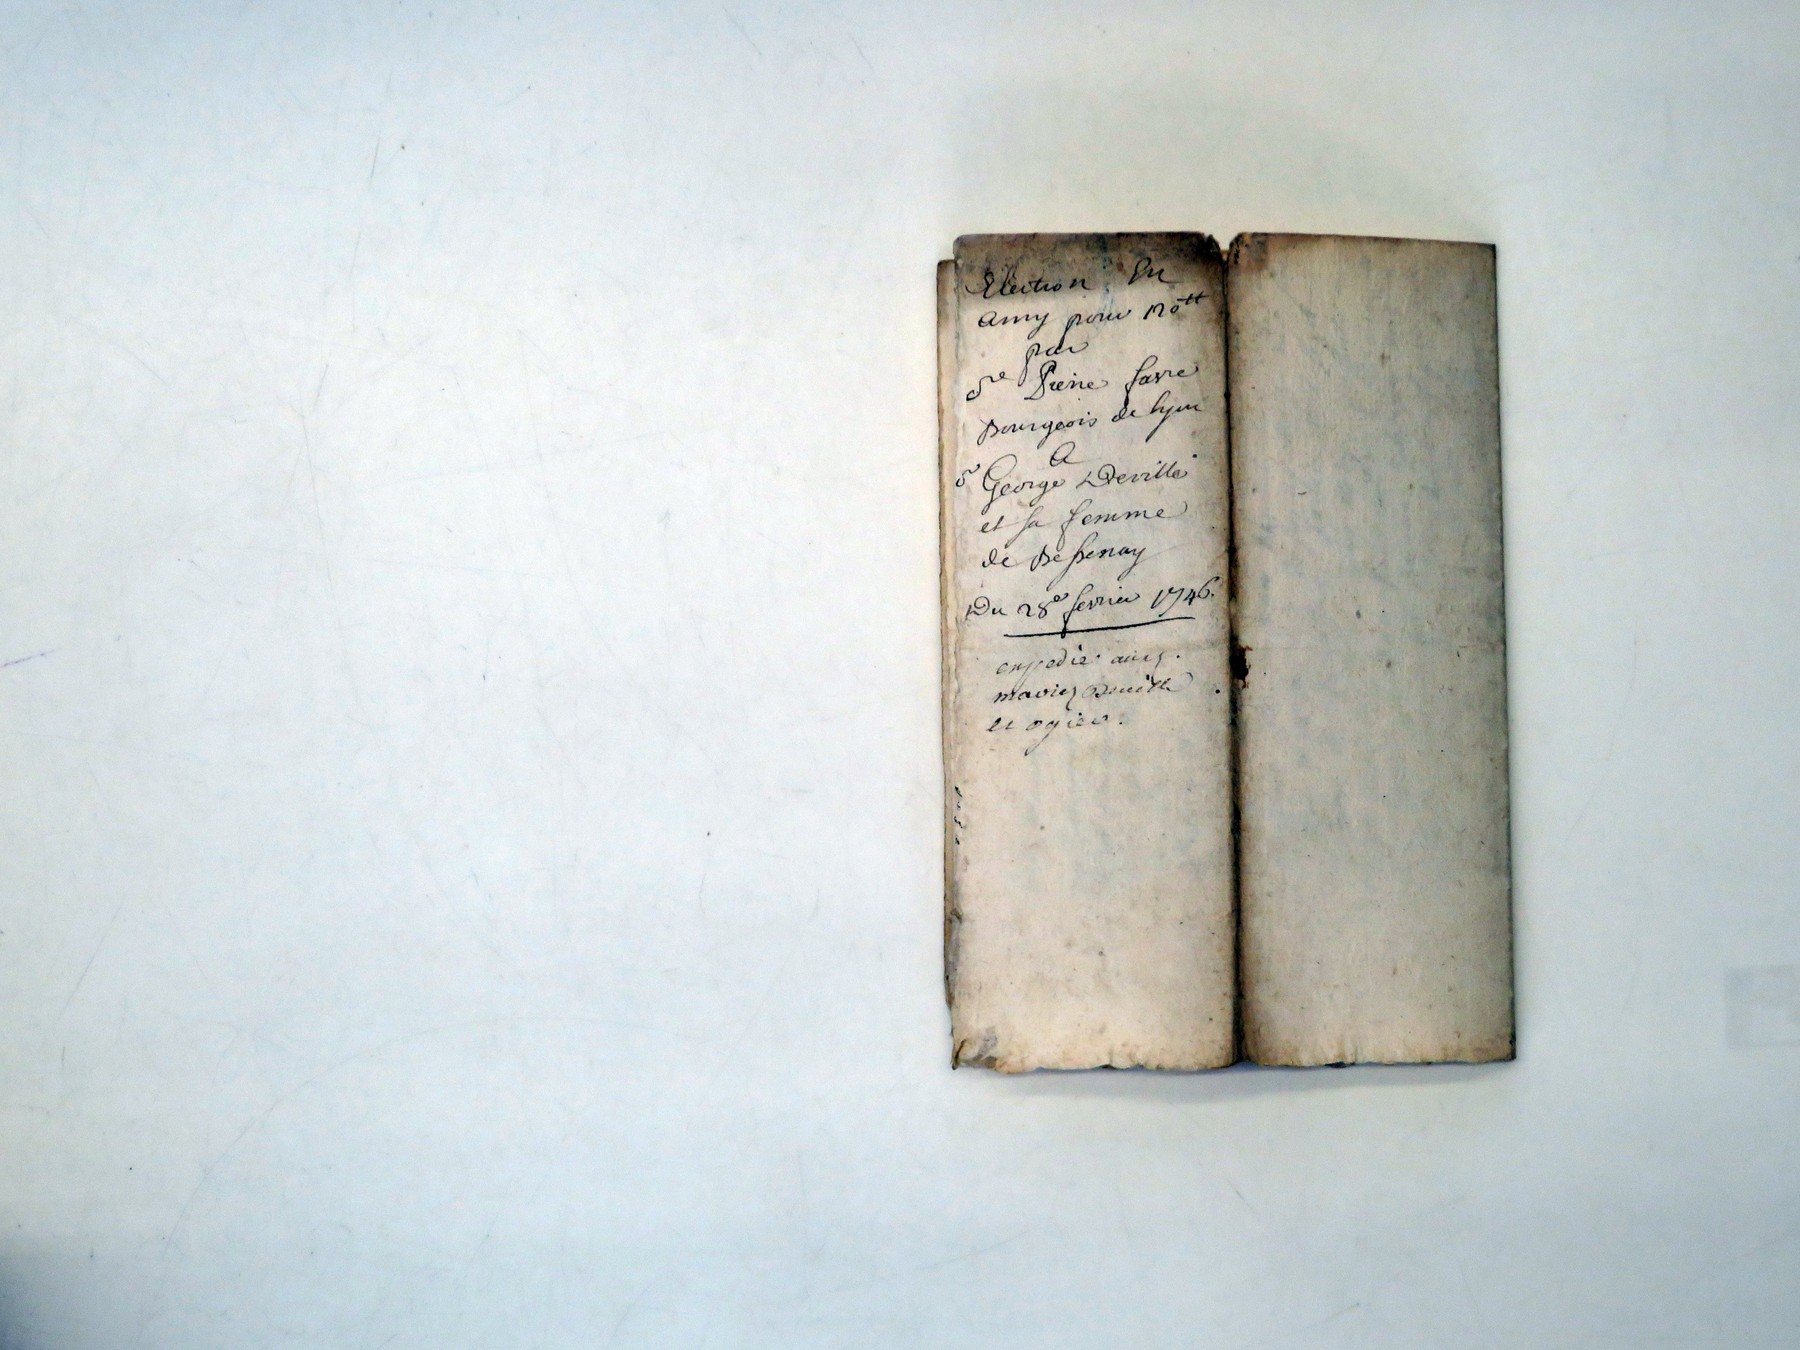 Election En
amy pour 120tt
par
Sr Pierre favre
Bourgeois de lyon
A
Sr George Deville
et sa femme
de Bessenay
Du 28e fevrier 1746.
expedié aux
mariez Deville
et ogier.